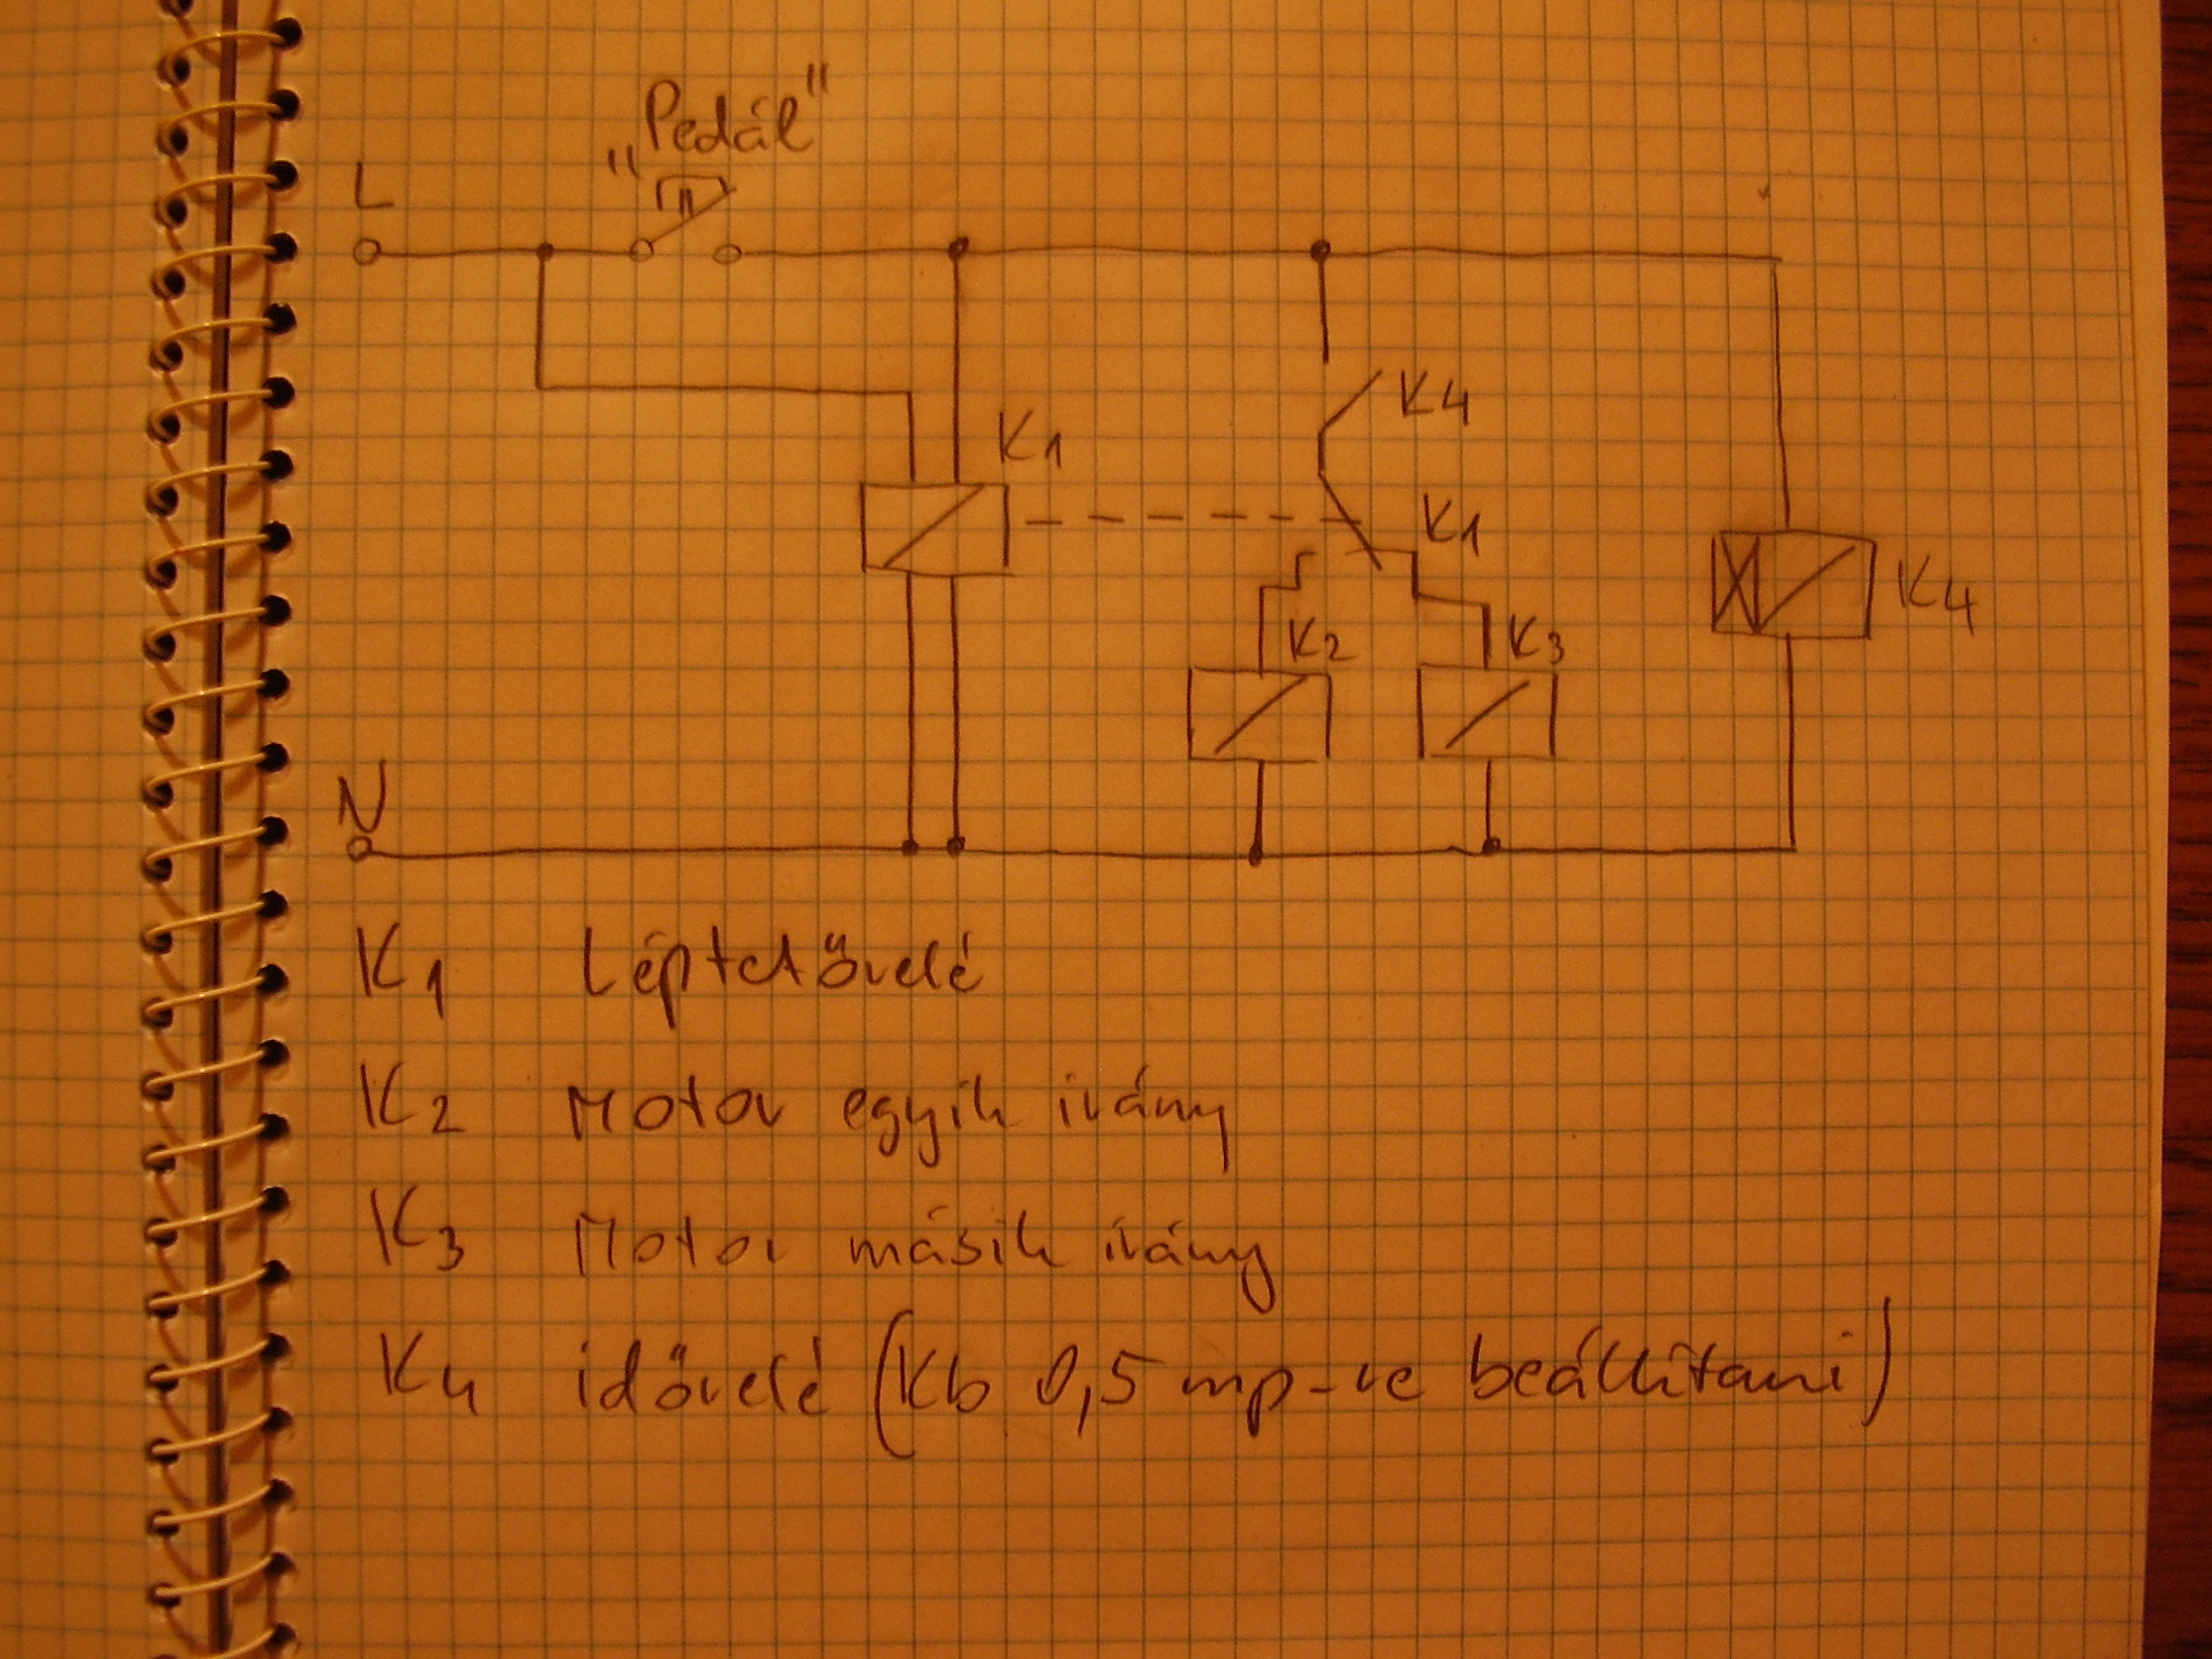 „Pedál"
L
K4
K1
K1
K4
K2
K3
N
K1 Léptetőrelé
K2 Motor egyik irány
K3 Motor másik irány
K4 időrelé (Kb 0,5 mp-re beállítani)